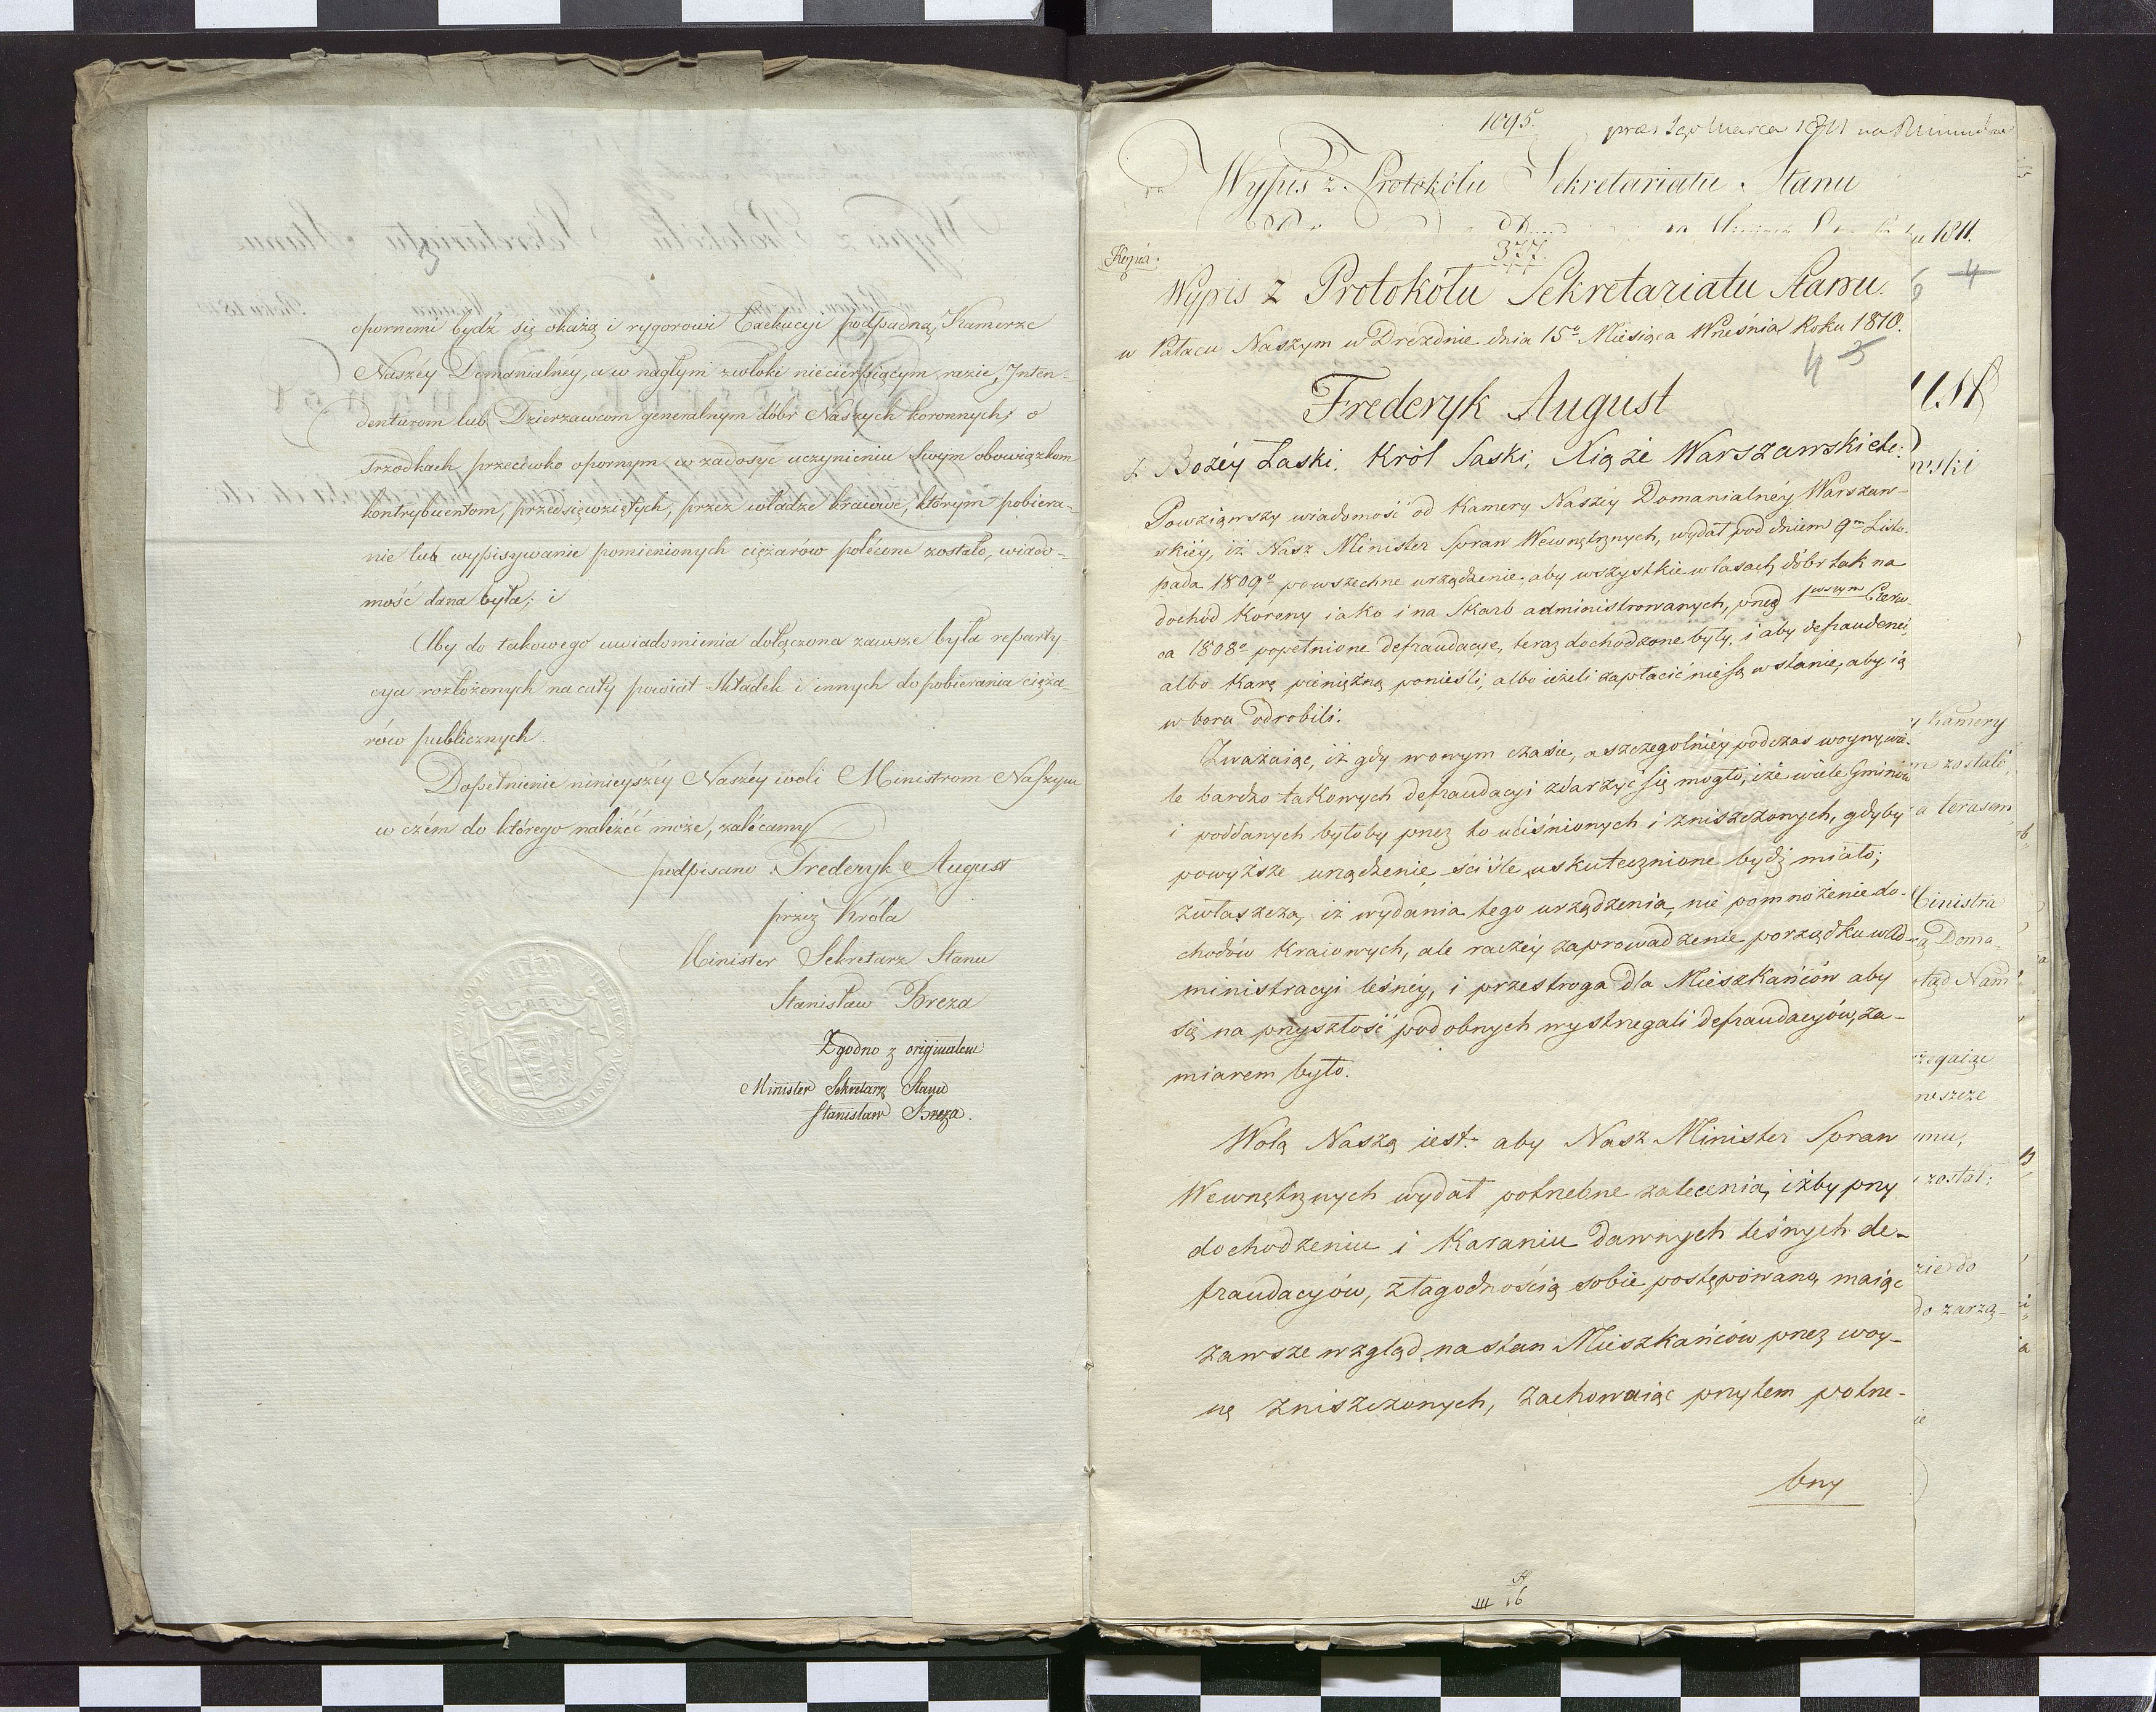 opornemi bydź się okażą i rygorowi Exekucyi podpadną, Kamerze
Naszéy Domanialnéy, a w nagłym zwłoki niecierpiącym razie, Inten-
denturom lub Dzierzawcom generalnym dóbr Naszych koronnych; o
srzodkach przeciwko opornym w zadosyć uczynieniu swym obowiązkom
kontrybuentom, przedsięwziętych, przez władze kraiowe, którym pobiera-
nie lub wypisywanie pomienionych ciężarów polécone zostało, wiado-
mość dana była; i
Aby do takowego uwiadomienia dołączona zawsze była reparty-
cya rozłożonych na cały powiat składek i innych do pobierania cięża-
rów publicznych.
Dopełnienie ninieyszéy Naszéy woli Ministrom Naszym
w czém do którego należéć może, zalécamy
podpisano Frederyk August
przez Króla
Minister Sekretarz Stanu
Stanisław Breza
Zgodno z originałem
Minister Sekretarz Stanu
Stanisław Breza.
1095.
Marca 1811
Wypis z Protokółu Sekretariatu Stanu
1811.
Kopia.
377.
4
Wypis z Protokółu Sekretariatu Stanu.
w Pałacu Naszym w Dreźdnie dnia 15º Miesiąca Wrześnią Roku 1810.
4 3
Frederyk August
z Bożéy Łaski, Król Saski, Xiąże Warszawski etc:
wski
Powziąwszy wiadomość od Kamery Naszéy Domanialnéy Warszaw-
skiéy, iż Nasz Minister Spraw Wewnętrznych, wydał pod dniem 9m Listo-
pada 1809º powszechne urządzenie, aby wszystkie w lasach dóbr tak na
dochód Korony iako i na Skarb administrowanych, przed 1wszym Czerw-
ca 1808º popełnione defraudacye, teraz dochodzone były, i aby defraudenci,
albo karę pieniężną ponieśli, albo ieżeli zapłacić nie są w stanie, aby ią
w boru odrobili.
Kamery
Zważaiąc, iż gdy w owym czasie, a szczególniéy podczas woyny, wie-
zostałe,
le bardzo takowych defraudacyi zdarzyć się mogło, iże wiele Gminów
i poddanych byłoby przez to uciśnionych i zniszczonych, gdyby
a terasem
powyższe urządzenie ściśle uskutecznione bydź miało;
zwłaszcza, iż wydania tego urządzenia, nie pomnożenie do-
Ministra
chodów Kraiowych, ale raczéy zaprowadzenie porządku w ad-
Doma-
ministracyi leśnéy, i przestroga dla Mieszkańców aby
tąd Nam
się na przyszłość podobnych wystrzegali defraudacyów, za-
miarem było.
zegaiąc
neszcze
Wolą Naszą iest: aby Nasz Minister Spraw
mu,
Wewnętrznych wydał potrzebne zalecenia, iżby przy
został;
dochodzeniu i karaniu dawnych leśnych de-
fraudacyów, z łagodnością sobie postępowano, maiąc
zie do
do zarzą-
zawsze wzgląd na stan Mieszkańców przez woy-
nę zniszczonych, zachowaiąc przytem potrze-
ie
bny
III 16